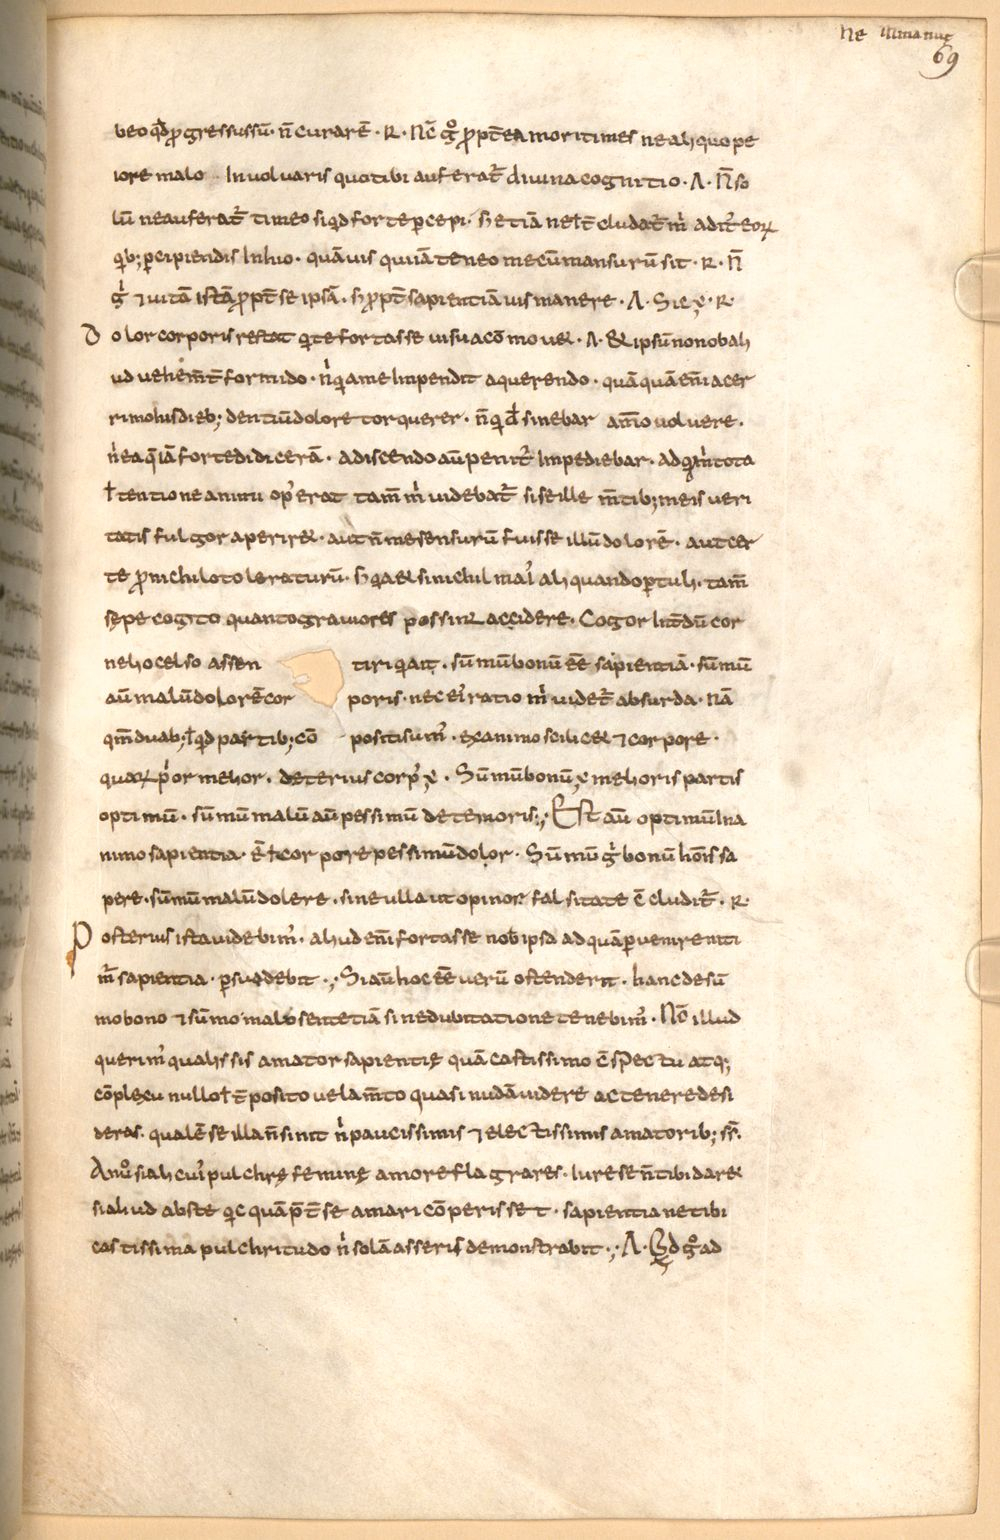 ne illma nuc
69
beo qđ p̄gressussū· n̄ curarē· R· Nē gͦ p̄pt̄ ea mori times ne aliquo pe
iore malo Inuoluaris quo tibi auferat᷑ diuina cognitio· A· N̄ so
lū ne auferat᷑ timeo siqđ forte ꝑcepi· sꝫ etiā neł c̄cludat᷑ m̄ adit᷒ eoꝝ
qͥbꝫ ꝑcipiendis Inhio· quāuis qui iā teneo mecū mansurū sit· R· N̄
gͥ ⁊ uitā istā p̄pt̄ se ipsā· sꝫ p̄pt̄ sapientiā uis manere· A· Sic ē· R·
Dolor corporis restat qͥ te fortasse ui sua cōmouet· A· Et ipsū non ob ali
ud uehem̄t̄ formido· nͥ qͥa me Impendit a querendo· quāquā em̄ acer
rimo hisdiebꝫ dentiū dolore torquerer· n̄ qͥđ sinebar am̄o uoluere·
nͥ ea q̄ iā forte didicerā· a discendo aū penit᷒ Impediebar· ad qͣm̄ tota
ł tentione animi op᷒ erat tam̄ mͥ videbat᷑ si se ille m̄tibꝫ meis ueri
tatis fulgor aperiret· aut n̄ me sensurū fuisse illū dolorē· aut cer
te p̄ nichilo toleraturū· sꝫ qͥa et si nichil maͥ aliquando ꝑtuli· tam̄
sępe cogito quanto grauiores possint accidere· Cogor Int̄dū cor
nelio celso assen tiri qͥ ait· sūmū bonū eē sapientiā· sūmū
aū malū dolorē cor poris· nec eiͥ ratio mͥ uidet᷑ absurda· Nā
qm̄ duabꝫ Inqđ partibꝫ cō positi sum᷒· ex animo scilicet ⁊ corpore·
quaꝝ pͥor melior· deterius corp᷒ ē· Sūmū bonū ē melioris partis
optimū· sūmū malū aū pessimū deterioris·; Est aū optimū Ina
nimo sapientia· ē I corpore pessimū dolor· Sūmū gͥ bonū hōis sa
pere· sūmū malū dolere· sine ulla ut opinor falsitate c̄cludit᷑· R·
Posterius ista uidebim᷒· aliud em̄ fortasse nob̄ ipsa ad quā ꝑuenire niti
m̄ sapientia· ꝑsuadebit·; Si aū hoc eē uerū ostenderit· hanc de sū
mo bono ⁊ sūmo malo sentetiā sine dubitatione tenebim᷒· Nc̄ illud
querim᷒ qualis sis amator sapientię quā castissimo c̄spectu atqꝫ
cōplexu nullo It̄posito uelam̄to quasi nudā uidere ac tenere desi
deras· qualē se illa n̄ sinit nͥ paucissimis ⁊ electissimis amatoribꝫ ss̄·
An uͦ si alicuiͥ pulchrę feminę amore flagrares· Iure se n̄ tibi daret
si aliud abs te qͥcquā p̄t̄ se amari cōperisset· sapientia ne tibi
castissima pulchritudo nͥ solā asseris demonstrabit·; A· Qͥd gͦ ad